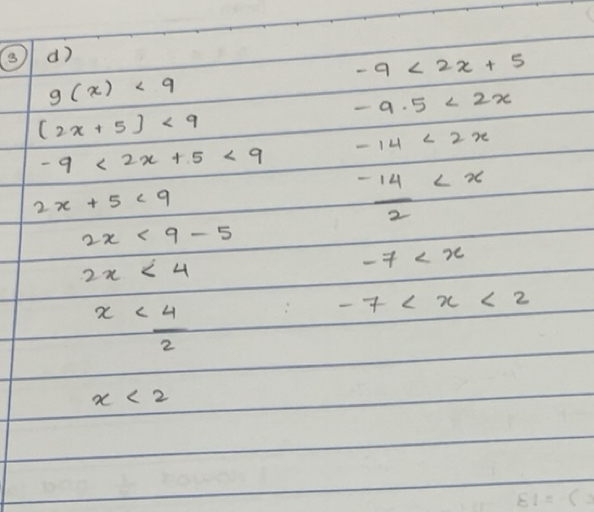 3 d)
g(x) < 9
[2x + 5] < 9
-9 < 2x + 5 < 9
2x + 5 < 9
2x < 9 - 5
2x < 4
x < 4/2
x < 2
-9 < 2x + 5
-9.5 < 2x
-14 < 2x
-14/2 < x
-7 < x
: -7 < x < 2